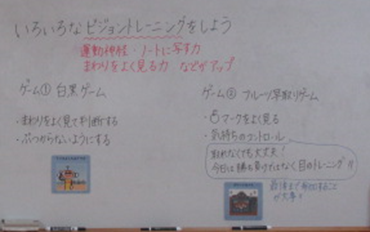 いろいろなビジョントレーニングをしよう
運動神経・ノートに写す力
まわりをよく見る力 などがアップ
ゲーム① 白黒ゲーム
・まわりをよく見て判断する
・ぶつからないようにする
ゲーム② フルーツ早取りゲーム
・マークをよく見る
・気持ちのコントロール
取れなくても大丈夫!
今日は勝ち負けではなく目のトレーニング
最後まで参加すること
が大事!